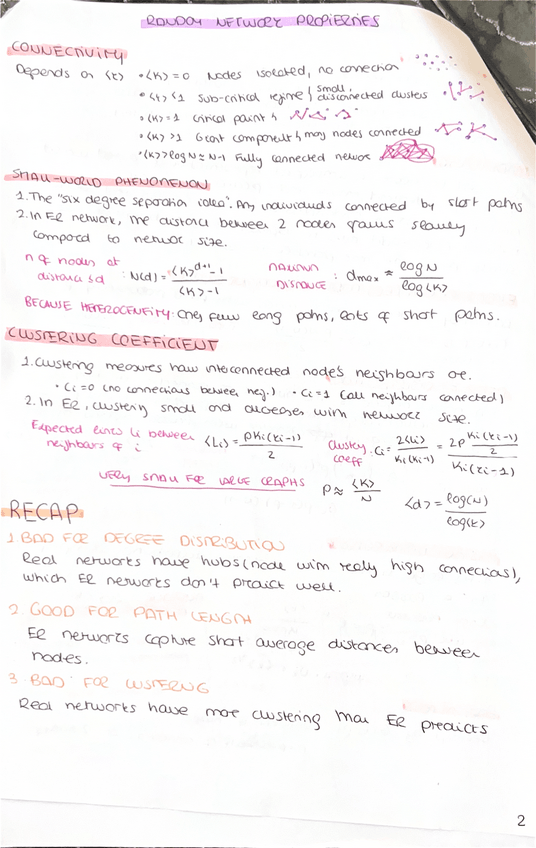 RANDOM NETWORK PROPIERTIES
CONNECTIVITY
Depends on <k> • <k> = 0 Nodes isolated, no connection
• <k> < 1 Sub-critical regime / small, disconnected clusters
• <k> = 1 Critical point
• <k> > 1 Giant component / many nodes connected
• <k> > log N ≈ N-1 Fully connected network
SMALL-WORLD PHENOMENON
1. The "six degree separation idea". Any individuals connected by short paths
2. In ER network, the distance between 2 nodes grows slowly
compared to network size.
n of nodes at distance ≤ d : N(d) = <k>^{d+1} - 1 / <k> - 1
: dmax ≈ log N / log <k>
BECAUSE HETEROGENEITY: Only few long paths, lots of short paths.
CLUSTERING COEFFICIENT
1. Clustering measures how interconnected node's neighbours are.
• Ci = 0 (no connections between neig.) • Ci = 1 (all neighbours connected)
2. In ER, clustering small and decreases with network size.
Expected links Li between neighbours of i <Li> = pKi(Ki-1) / 2
Clustering coeff. Ci = 2<Li> / Ki(Ki-1) = 2p Ki(Ki-1)/2 / Ki(Ki-1)
VERY SMALL FOR LARGE GRAPHS p ≈ <k> / N <d> = log(N) / log(k)
RECAP
1 BAD FOR DEGREE DISTRIBUTION
Real networks have hubs (node with really high connections),
which ER networks don't predict well.
2. GOOD FOR PATH LENGTH
ER networks capture short average distances between
nodes.
3. BAD FOR CLUSTERING
Real networks have more clustering than ER predicts
2